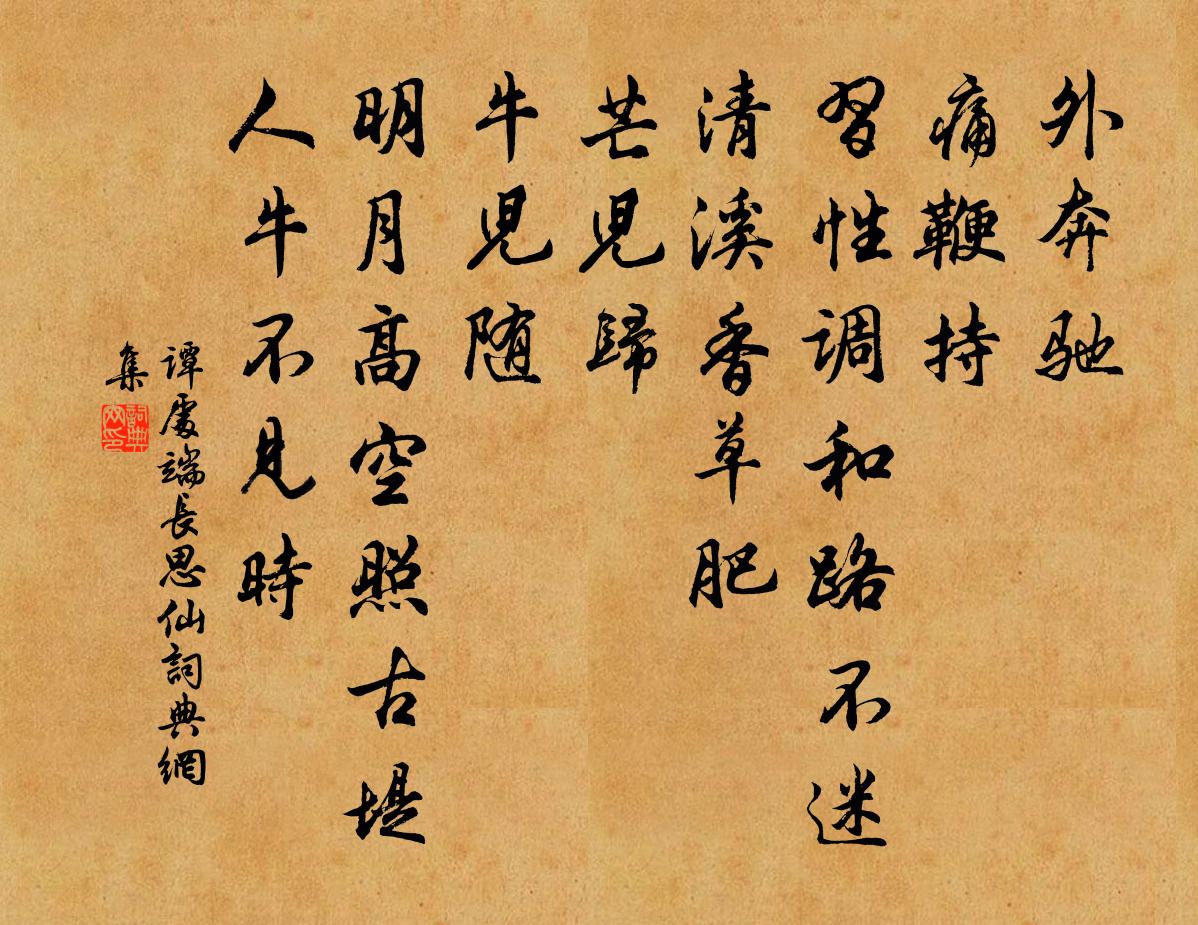 外奔驰
痛鞭持
習性調和路不迷
清溪香草肥
芒兒歸
牛兒随
明月高空照古堤
人牛不見時
譚處端長思仙詞典網
集
詞典
网印